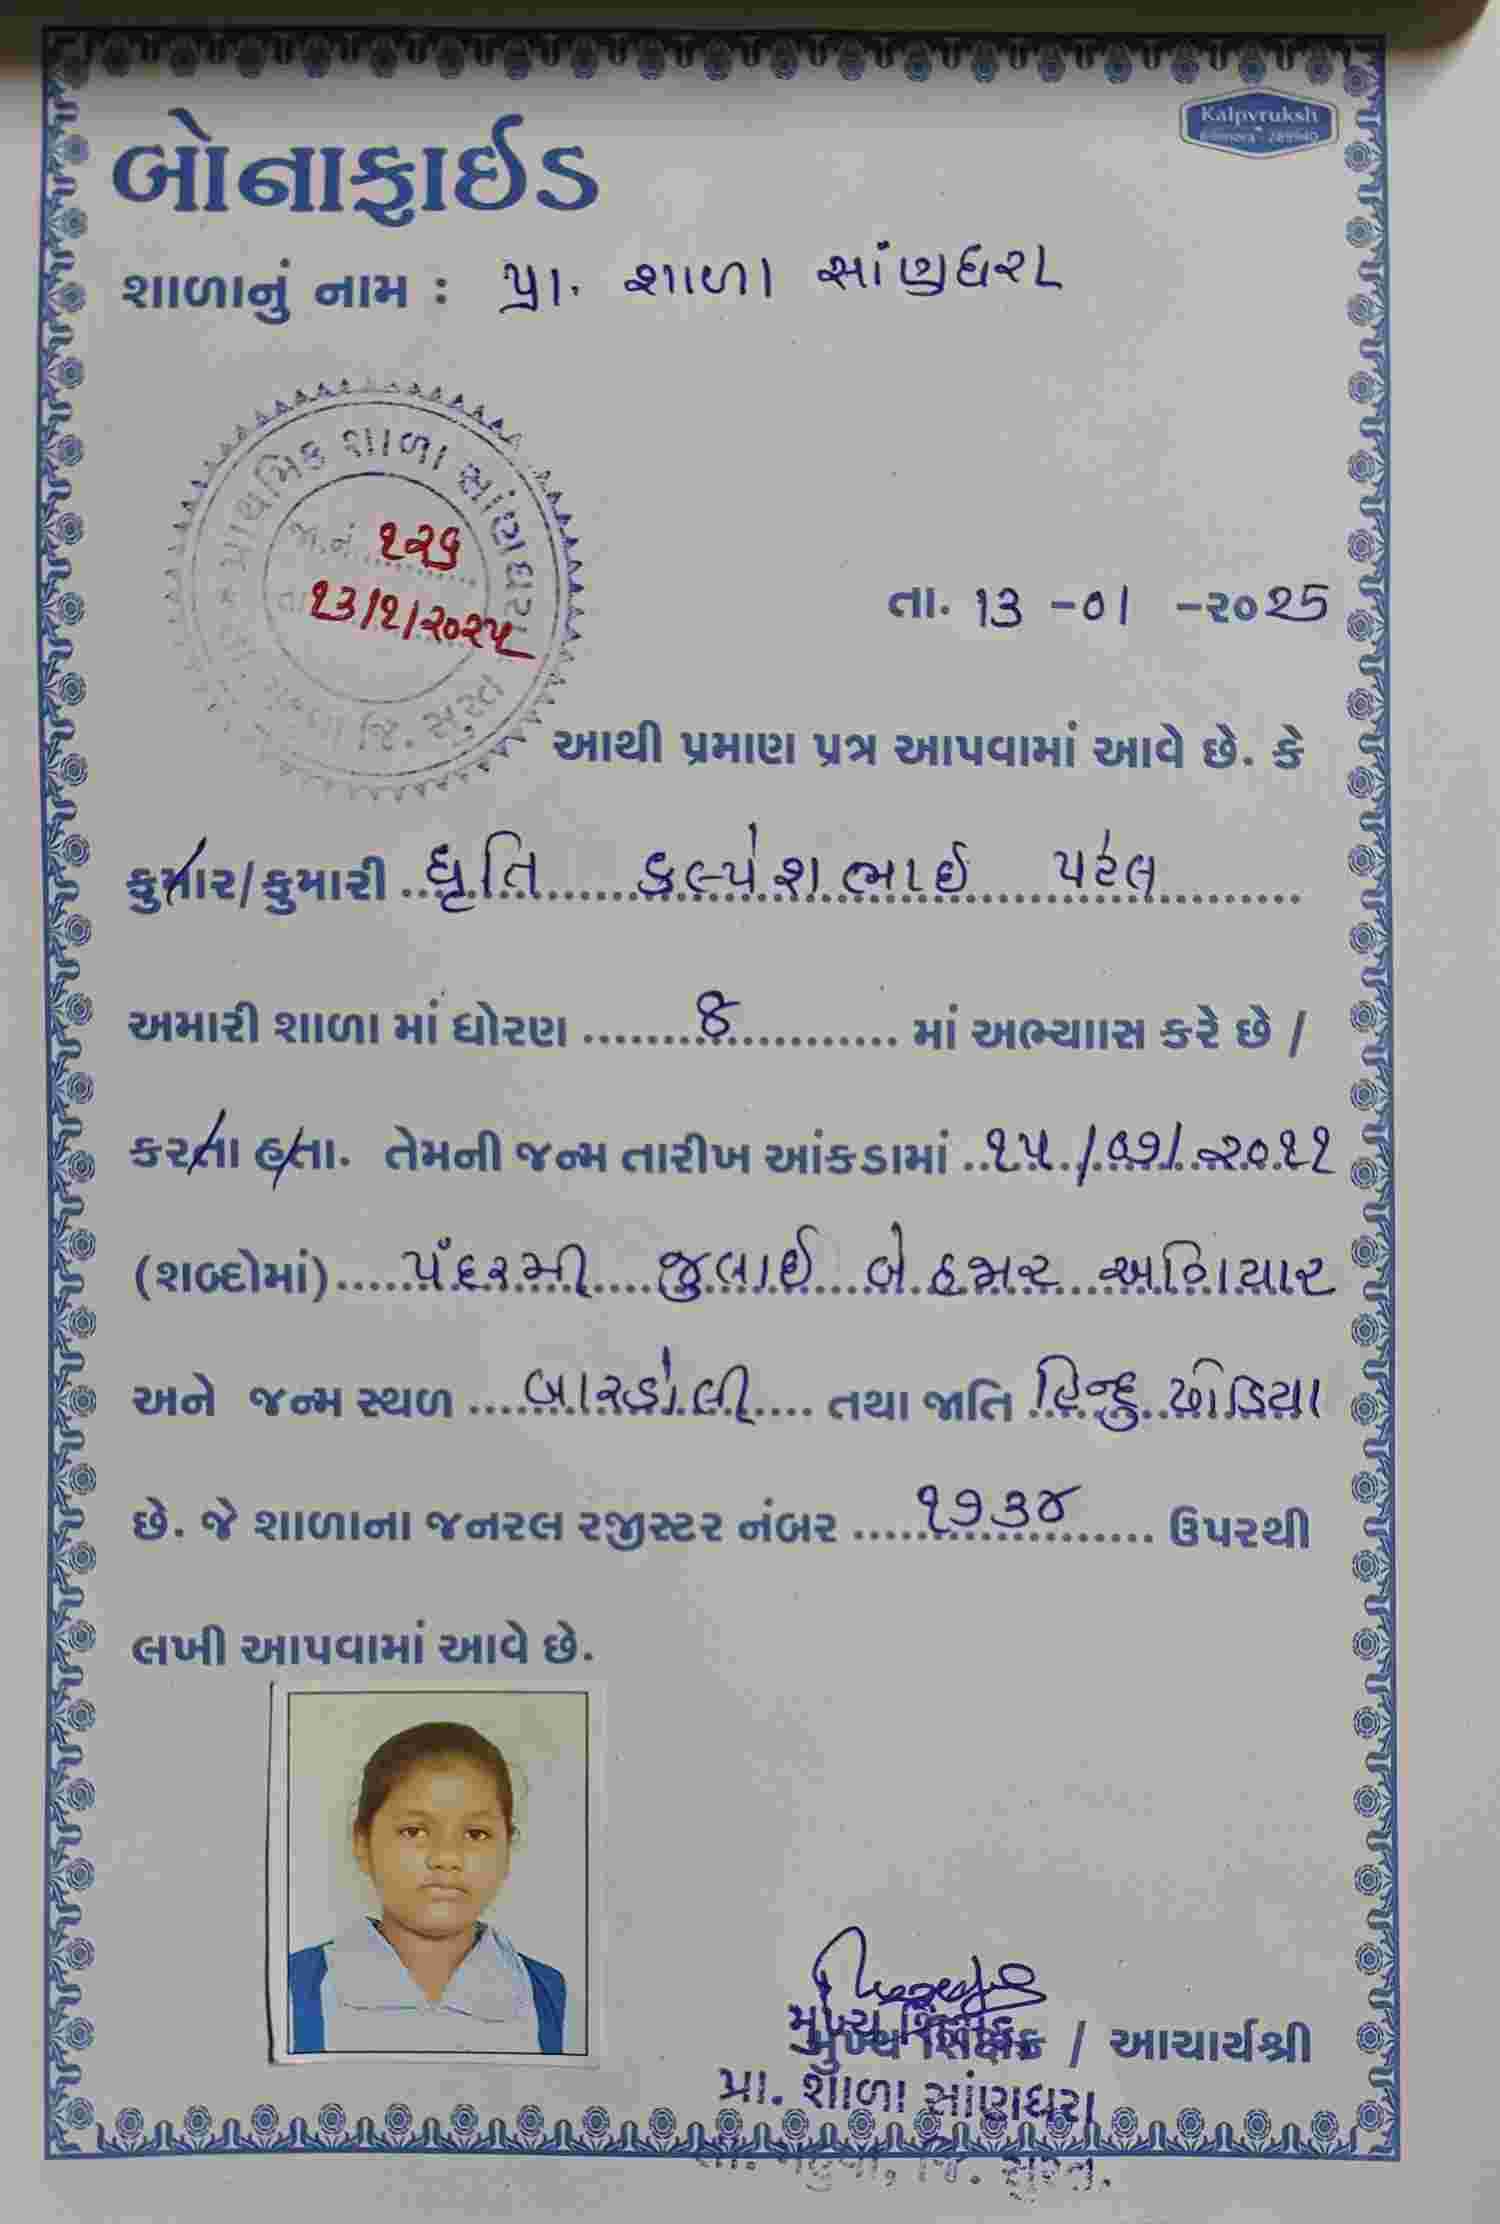 Kalpvruksh
બોનાફાઈડ
શાળાનું નામ : પ્રા. શાળા સાંણધરા
પ્રાથમિક શાળા સાંણધરા
જા.નં. ૧૨૬
તા ૧૩/૧/૨૦૨૫
જિ. સુરત
તા. 13 -01 -૨૦25
આથી પ્રમાણ પત્ર આપવામાં આવે છે. કે
કુમાર/કુમારી ધૃતિ કલ્પેશભાઈ પટેલ
અમારી શાળા માં ધોરણ ૪ માં અભ્યાાસ કરે છે /
કરતા હતા. તેમની જન્મ તારીખ આંકડામાં ૧૫/૦૭/૨૦૧૧
(શબ્દોમાં) પંદરમી જુલાઈ બે હજાર અગિયાર
અને જન્મ સ્થળ બારડોલી તથા જાતિ હિન્દુ ધોડિયા
છે. જે શાળાના જનરલ રજીસ્ટર નંબર ૧૭૩૪ ઉપરથી
લખી આપવામાં આવે છે.
મુખ્ય શિક્ષક
મુખ્ય શિક્ષક / આચાર્યશ્રી
પ્રા. શાળા સાંણધરા
જિ. સુરત.